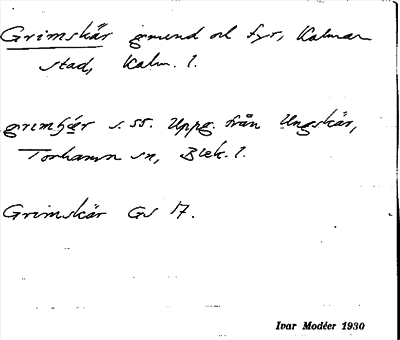 Grimskär grund och fyr, Kalmar
stad, Kalm. l.
s. 55. Uppg. från Ungskär,
Torhamn sn, Blek. l.
Grimskär GS 17.
Ivar Modéer 1930